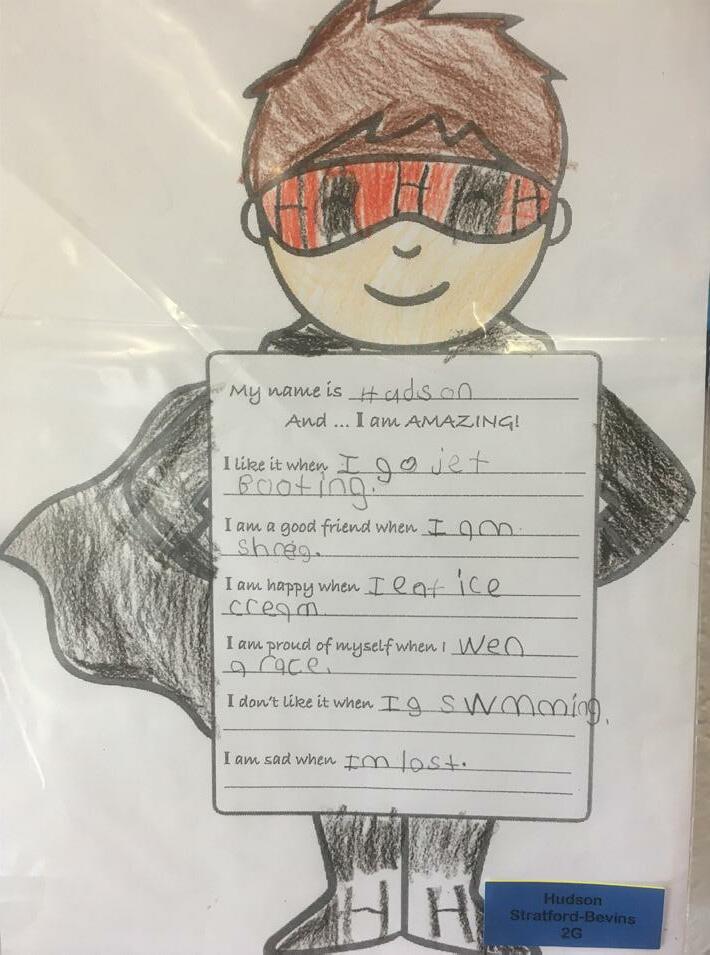 H H H
My name is Hudson
And ... I am AMAZING!
I like it when I go jet
Booting.
I am a good friend when I am
shreg.
I am happy when I eat ice
cream
I am proud of myself when I wen
a race.
I don't like it when I g swmming.
I am sad when Im lost.
H H
Hudson
Stratford-Bevins
2G